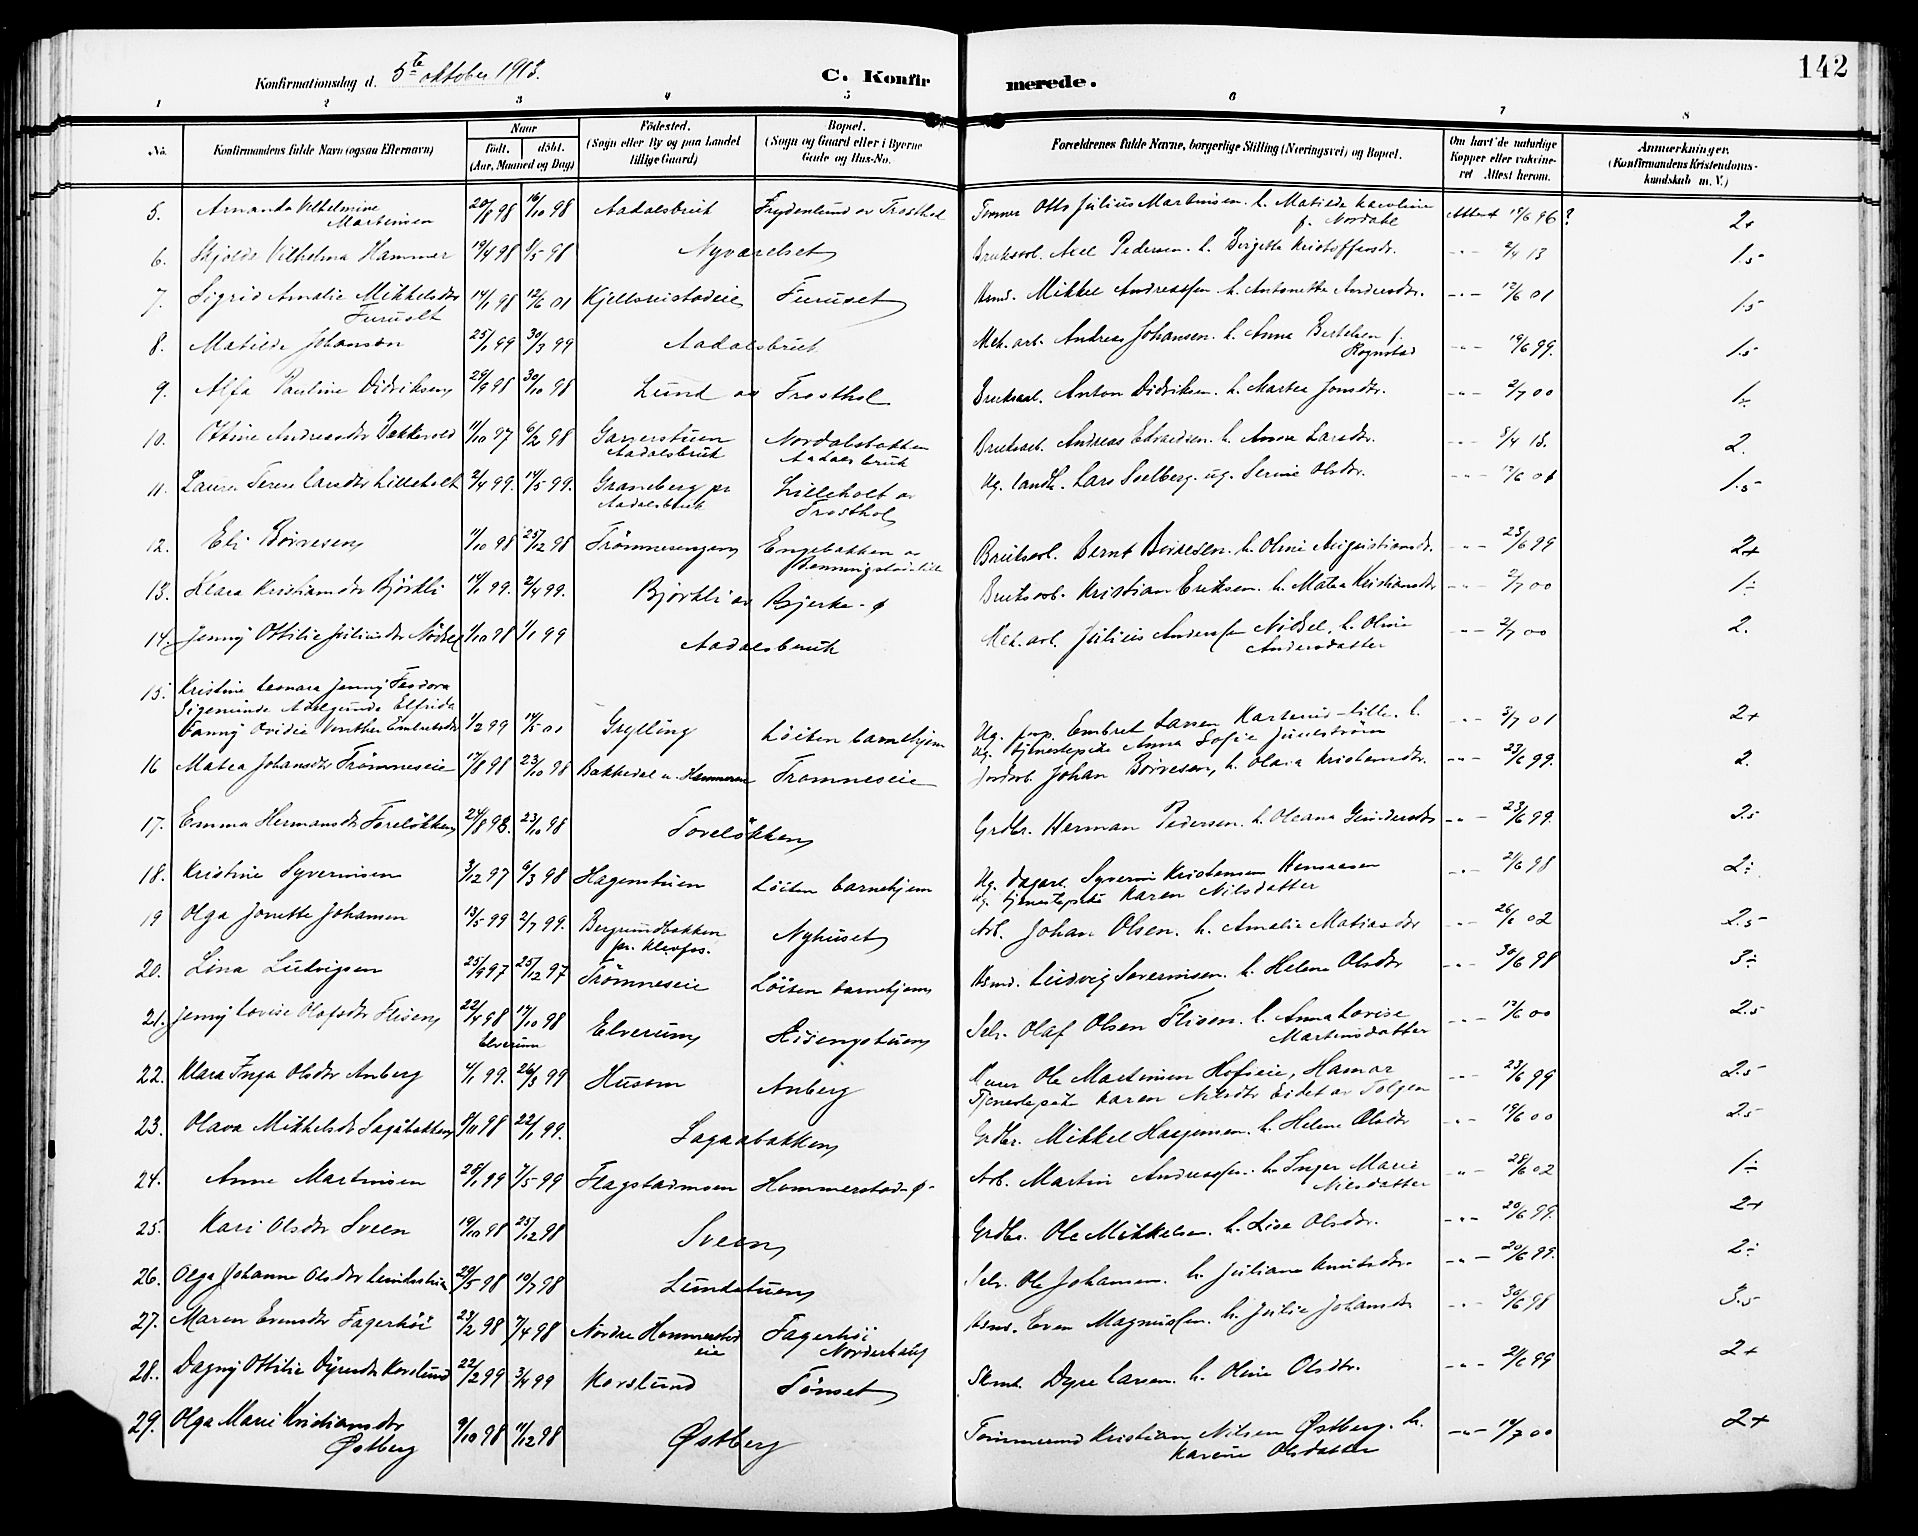 142
Konfirmationsdag d. 5te oktober 1913.
C. Konfirmerede.
1 2 3 4 5 6 7 8
No. Konfirmandens fulde Navn (ogsaa Efternavn) Naar födt. döbt. (Aar, Maaned og Dag) Födested. (Sogn eller By og paa Landet tillige Gaard) Bopæl. (Sogn og Gaard eller i Byerne Gade og Hus-No. Forældrenes fulde Navne, borgerlige Stilling (Næringsvei) og Bopæl. Om havt de naturlige Kopper eller vakcineret Attest herom. Anmerkninger. (Konfirmandens Kristendomskundskab m. V.)
5. Amanda Vilhelmine Martinsen 20/8 98 16/10 98 Aadalsbruk Frydenlund av Frosthol Otto Julius Martinsen. h. Matilde Karoline f. Nordahl Attest 15/6 96? 2+
6. Skjolde Vilhelma Hammer 19/4 98 8/5 98 Nyværelset Bruksarb. Axel Pedersen. h. Birgitte Kristoffersdr. -"- 2/4 13 1.5
7. Sigrid Amalie Mikkelsdtr Furuset 14/1 98 12/6 01 Kjellsristadeie Furuset Hsmd. Mikkel Andreassen h. Antonette Andersdtr. -"- 12/6 01 1.5
8. Matilde Johansen 25/1 99 30/3 99 Aadalsbruk Mek. arb. Andreas Johansen. h. Anna Bertelsen f. Rognstad -"- 19/6 99. 1.5
9. Alfa Pauline Didriksen 29/9 98 30/10 98 Lund av Frosthol Bruksarb. Anton Didriksen. h. Martea Jonsdtr. -"- 2/7 00 1÷
10. Ottine Andreasdtr Bakkerud 11/10 97 6/2 98 Garverstuen Aadalsbruk Nordalsbakken Aadalsbruk Bruksarb. Andreas Edvardsen. h. Anna Larsdtr. -"- 5/4 13. 2.
11. Laura Terese Larsdtr Lilleholt 2/4 99. 14/5 99. Graneberg pr Aadalsbruk Lilleholt av Frosthol Ug. landh. Lars Svelberg. ug. Serine Olsdtr. -"- 12/6 01 1.5
12. Eli Börvesen 11/10 98 25/12 98 Trömnesengen Engebakken av Bruksarb. Bernt Börvesen. h. Oline Augustiansdr. -"- 23/6 99 2+
13. Klara Kristiansdtr Björkli 14/1 99. 2/4 99. Björkli av Bjerke-ø Bruksarb. Kristian Eriksen. h. Matea Kristiansdtr -"- 2/7 00 1÷
14. Jenny Ottilie Juliusdtr Nötsel 1/10 98 1/1 99 Aadalsbruk Mek. arb. Julius Anderssen Nötsel. h. Oline Andersdatter -"- 2/7 00 2.
15. Kristine Leonara Jenny Feodora
Sigemunde Adelgunde Elfrida
Fanny Ovidie Embretsdtr 1/2 99 14/5 01 Grylling Löiten barnehjem Ug. Embret Larsen Karterud-lille. h. ug. tjenestepike Anna Sofie Juulström -"- 3/7 01 2+
16 Matea Johansdtr Trömneseie 17/8 98 23/10 98 Bakkedal u. Hammeren Tromneseie Jordarb. Johan Börvesen, h. Olava Kristiansdtr. -"- 23/6 99. 2.
17. Emma Hermansdtr Torelökken 24/8 98. 23/10 98 Torelökken Grdbr. Herman Pedersen. h. Oleana Gundersdtr -"- 23/6 99. 2.5
18. Kristine Syverinsen 3/12 97 6/3 98 Hagenstuen Löiten barnehjem Ug. dagarb. Syverin Kristensen Hensaasen ug. tjenestepike Karen Nilsdatter -"- 2/6 98 2÷
19 Olga Jonette Johansen 13/5 99 2/7 99. Bergundbakken pr. Klevfos. Nyhuset Arb. Johan Olsen. h. Amalie Matiasdtr -"- 26/6 02 2.5
20. Lina Ludvigsen 25/9 97 25/12 97 Trömneseie Löiten barnehjem Hsmd. Ludvig Severinsen. h. Helene Olsdtr -"- 30/6 98 3÷
21. Jenny Lovise Olafsdtr Flisen 22/4 98 17/10 98 Elverum Elverum Hisengstuen Selv. Olaf Olsen Flisen. h. Anna Lovise Martinsdatter -"- 12/6 00 2.5
22. Klara Inga Olsdtr Anberg 4/1 99. 26/3 99 Husom Anberg Murer Ole Martinsen Hofseie, Hamar Tjenestepike Karen Nilsdtr Eidet av Tolgen -"- 23/6 99 2.5
23. Olava Mikkelsdr Sagabakken 8/11 98 22/1 99. Sagaabakken Grdbr. Mikkel Haagensen. h. Helene Olsdtr -"- 19/6 00 2.5
24. Anne Martinsen 28/1 99 7/5 99 Flagstadmoen Hommerstad-ø- Arb. Martin Andreassen. h. Inger Marie Nilsdatter -"- 28/6 02 1÷
25. Kari Olsdtr Sveen 19/10 98 25/12 98 Sveen Grdbr. Ole Mikkelsen. h. Lise Olsdtr. -"- 20/6 99. 2+
26. Olga Johanne Olsdtr Lundestuen 29/5 98 10/7 98 Lundstuen Selv. Ole Johansen. h. Juliane Knutsdtr. -"- 20/6 99. 2÷
27. Maren Evensdtr Fagerhöi 23/2 98 7/4 98 Nordre Hommerstad eie Fagerhöi Norderhaug Hsmd. Even Magnussen. h. Julie Johansdtr -"- 30/6 98 3.5
28. Dagny Ottilie Dyresdtr Korslund 22/2 99. 3/4 99 Korslund Tönset Skom. Dyre Larsen. h. Oline Olsdtr. -"- 21/6 99 2+
29. Olga Marie Kristiansdtr Østberg 9/10 98 11/12 98 Østberg Tömmermd Kristian Nilsen Østberg. h. Karine Olsdatter -"- 10/7 00 2+